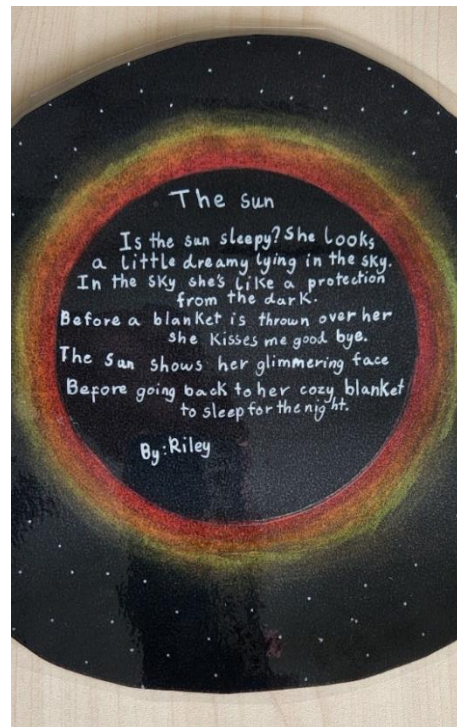 The sun
Is the sun sleepy? She looks
a little dreamy lying in the sky.
In the sky she's like a protection
from the dark.
Before a blanket is thrown over her
she kisses me good bye.
The Sun shows her glimmering face
Before going back to her cozy blanket
to sleep for the night.
By: Riley